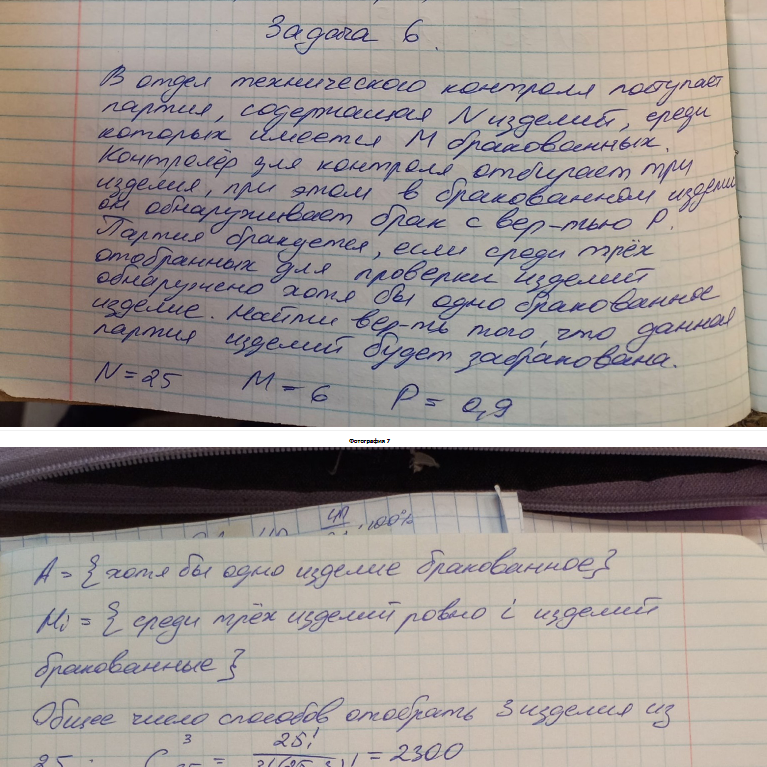 Задача 6.
В отдел технического контроля поступает
партия, содержащая N изделий, среди
которых имеется M бракованных.
Контролёр для контроля отбирает три
изделия, при этом в бракованном изделии
он обнаруживает брак с вер-тью P.
Партия бракуется, если среди трёх
отобранных для проверки изделий
обнаружено хотя бы одно бракованное
изделие. Найти вер-ть того, что данная
партия изделий будет забракована.
N = 25 M = 6 P = 0,9
Фотография 7
100%
A = { хотя бы одно изделие бракованное}
Hi = { среди трёх изделий ровно i изделий
бракованные }
Общее число способов отобрать 3 изделия из
25: = 25! = 2300